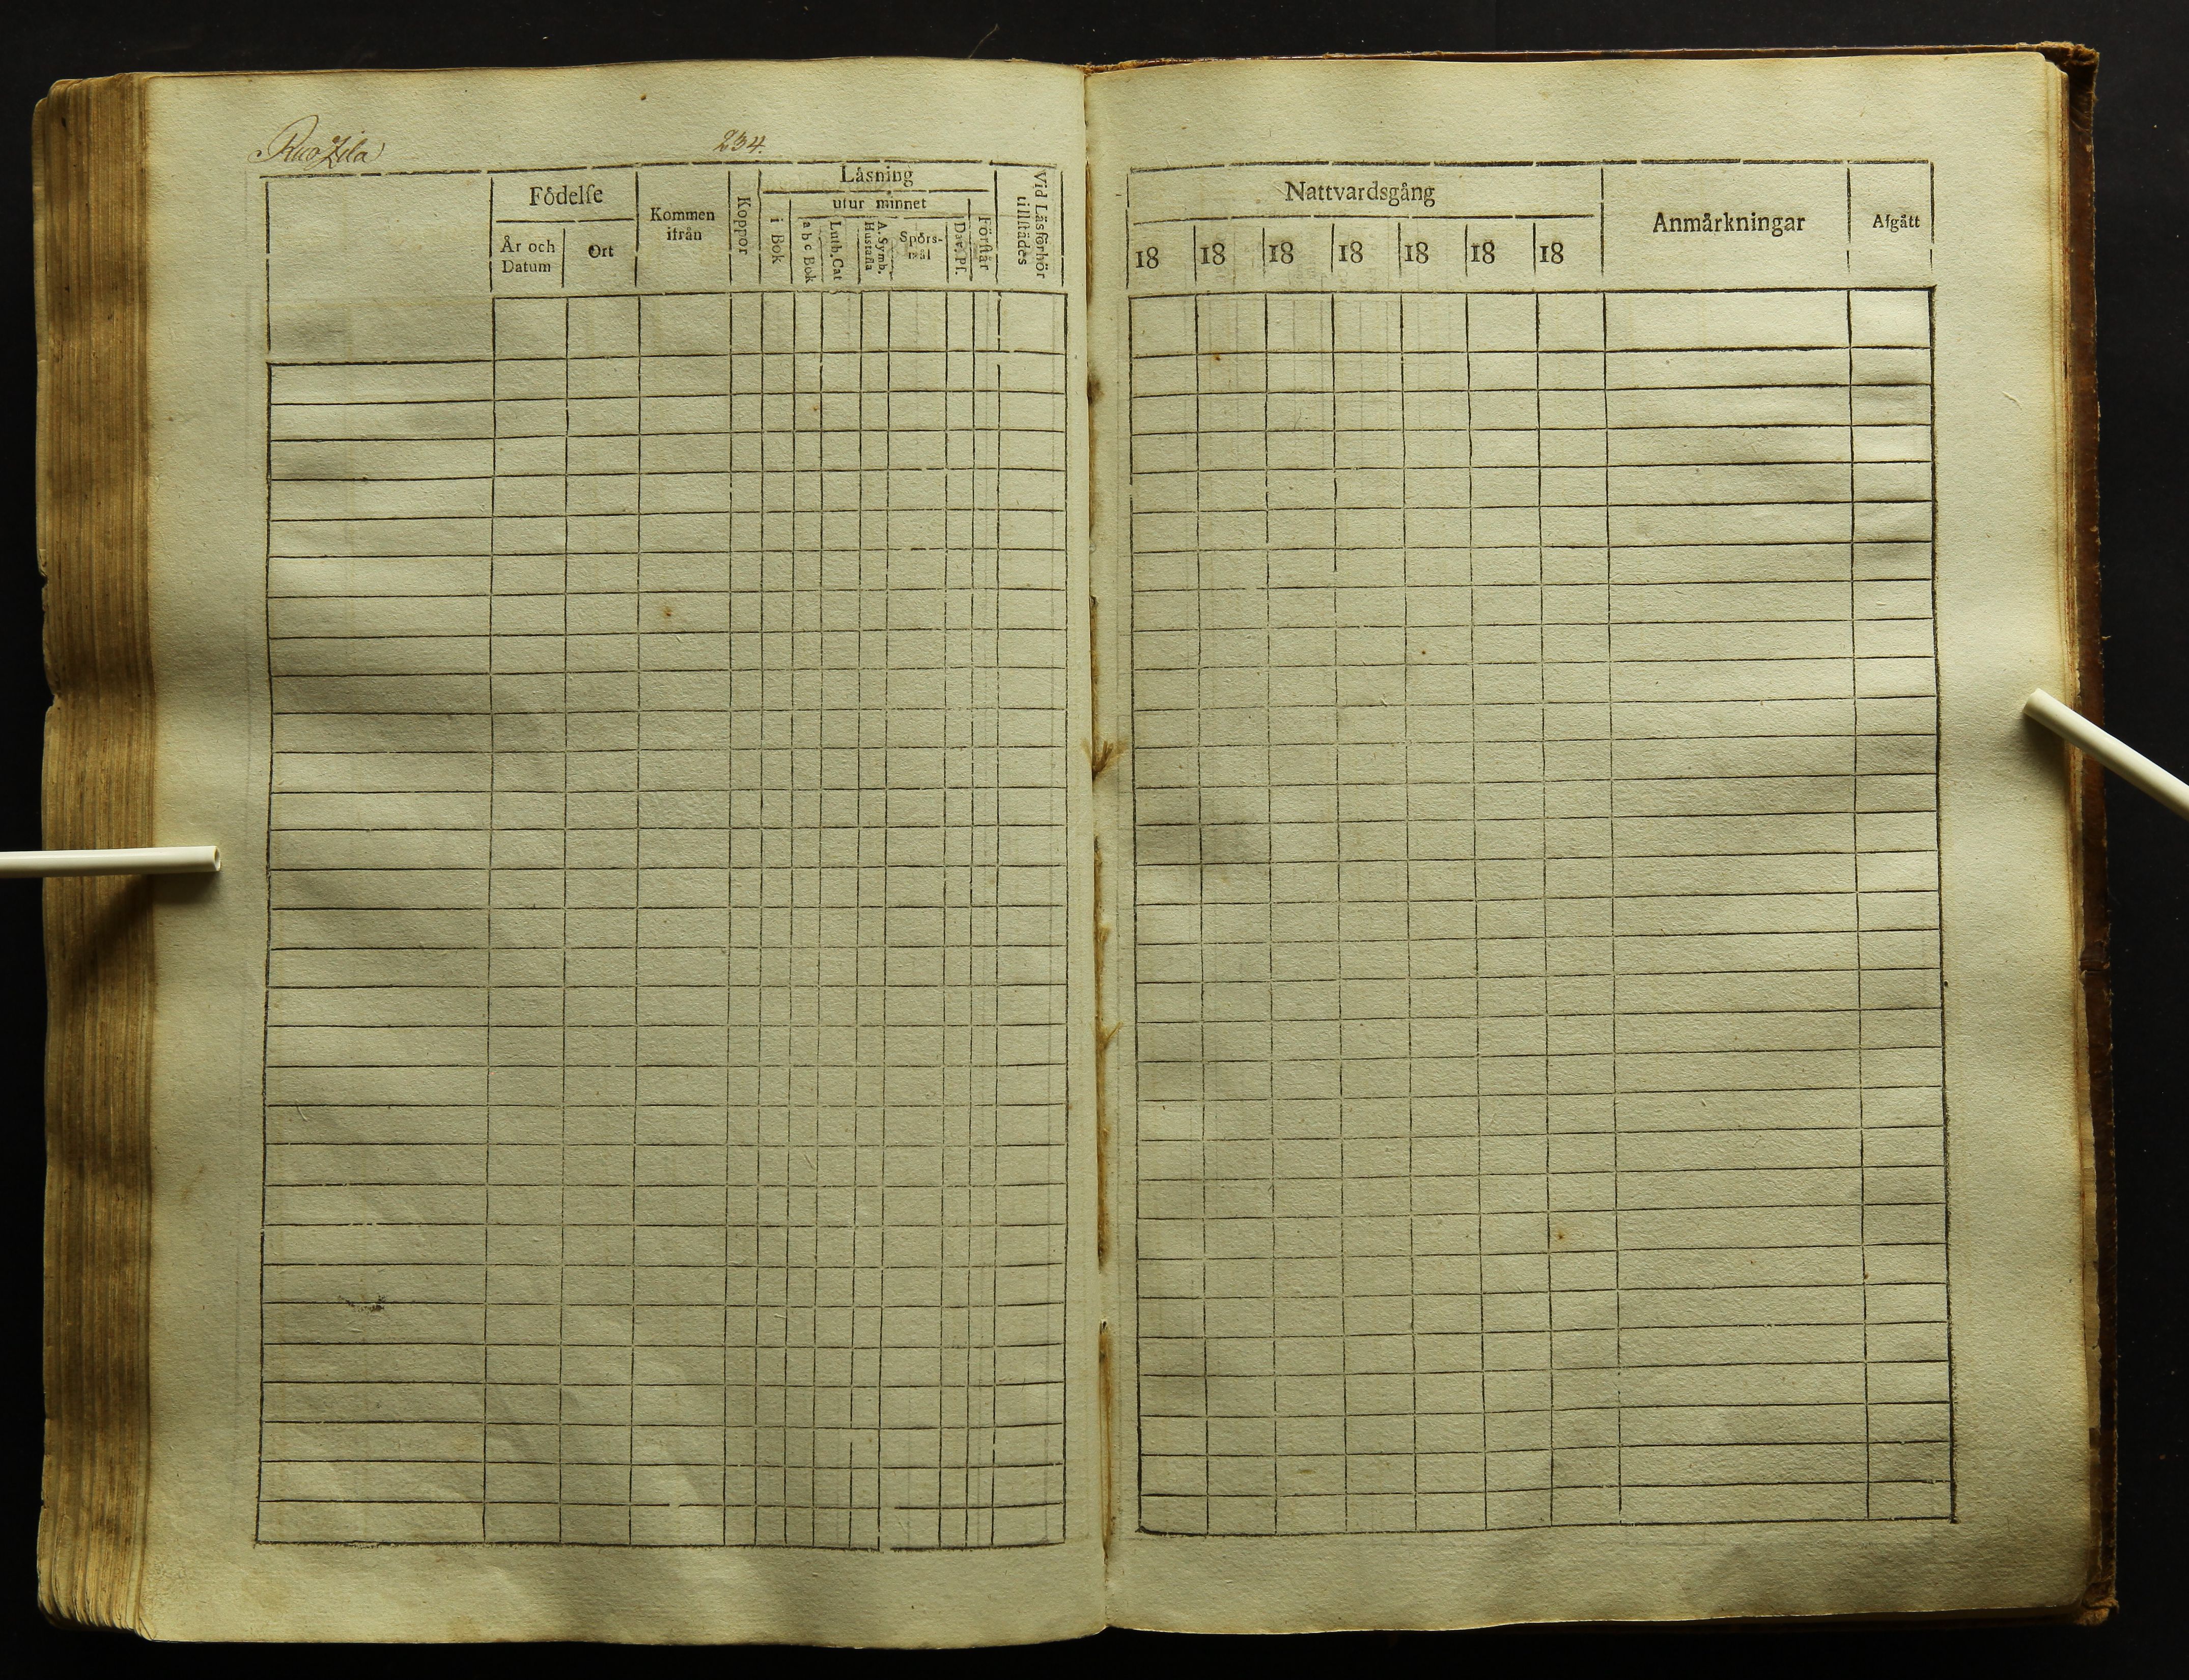 Ruozila 234.
Födelse
År och Datum
Ort
Kommen ifrån
Koppor
Läsning
i Bok
utur minnet
a b c Bok
Luth. Cat
A. Symb. Hustafla
Spörs-mål
Dav. Ps.
Förstår
Vid Läsförhör tillstädes
Nattvardsgång
18 18 18 18 18 18 18
Anmärkningar
Afgått